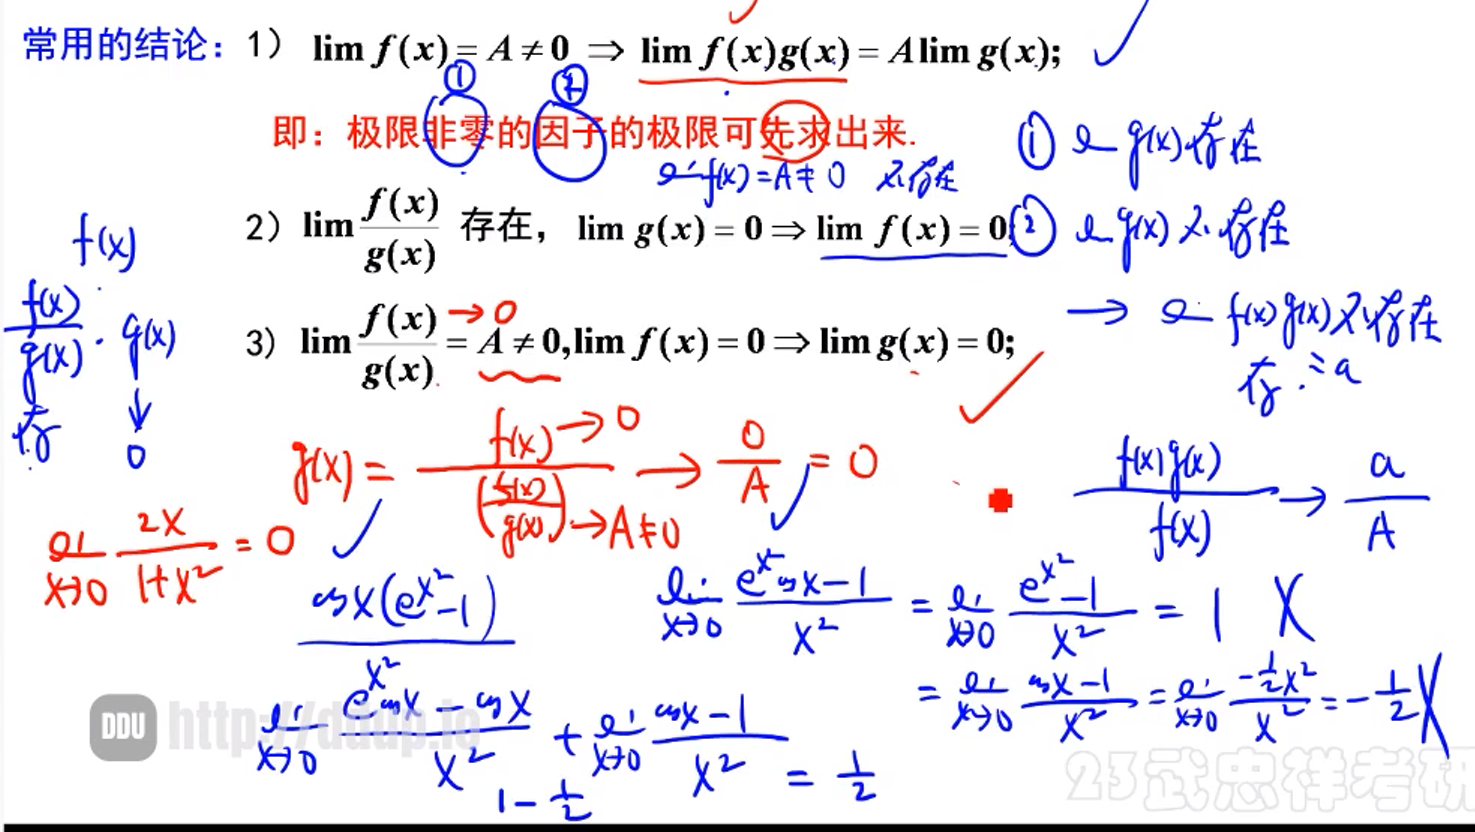 常用的结论：1） lim f(x) = A ≠ 0 ⇒ lim f(x)g(x) = A lim g(x);
① ②
即：极限非零的因子的极限可先求出来.
① lim g(x) 存在
lim f(x) = A ≠ 0 不存在
2） lim f(x)/g(x) 存在， lim g(x) = 0 ⇒ lim f(x) = 0;
② lim g(x) 不存在
f(x)
f(x)/g(x) · g(x)
→ lim f(x)g(x) 不存在
存 = a
3) lim f(x)/g(x) = A ≠ 0, lim f(x) = 0 ⇒ lim g(x) = 0;
→ 0
存 ↓ 0
g(x) = f(x) → 0 / (f(x)/g(x)) → A ≠ 0 → 0/A = 0
f(x)g(x)/f(x) → a/A
lim x→0 2x/(1+x²) = 0
cosx(e^x² -1)/x²
lim x→0 (e^x² cosx - 1)/x² = lim x→0 (e^x² - 1)/x² = 1 X
= lim x→0 (cosx - 1)/x² = lim x→0 (-½x²)/x² = -½ X
lim x→0 (e^x² cosx - cosx)/x² + lim x→0 (cosx - 1)/x² = ½
1 - ½
DDU http://ddup.io
23武忠祥考研